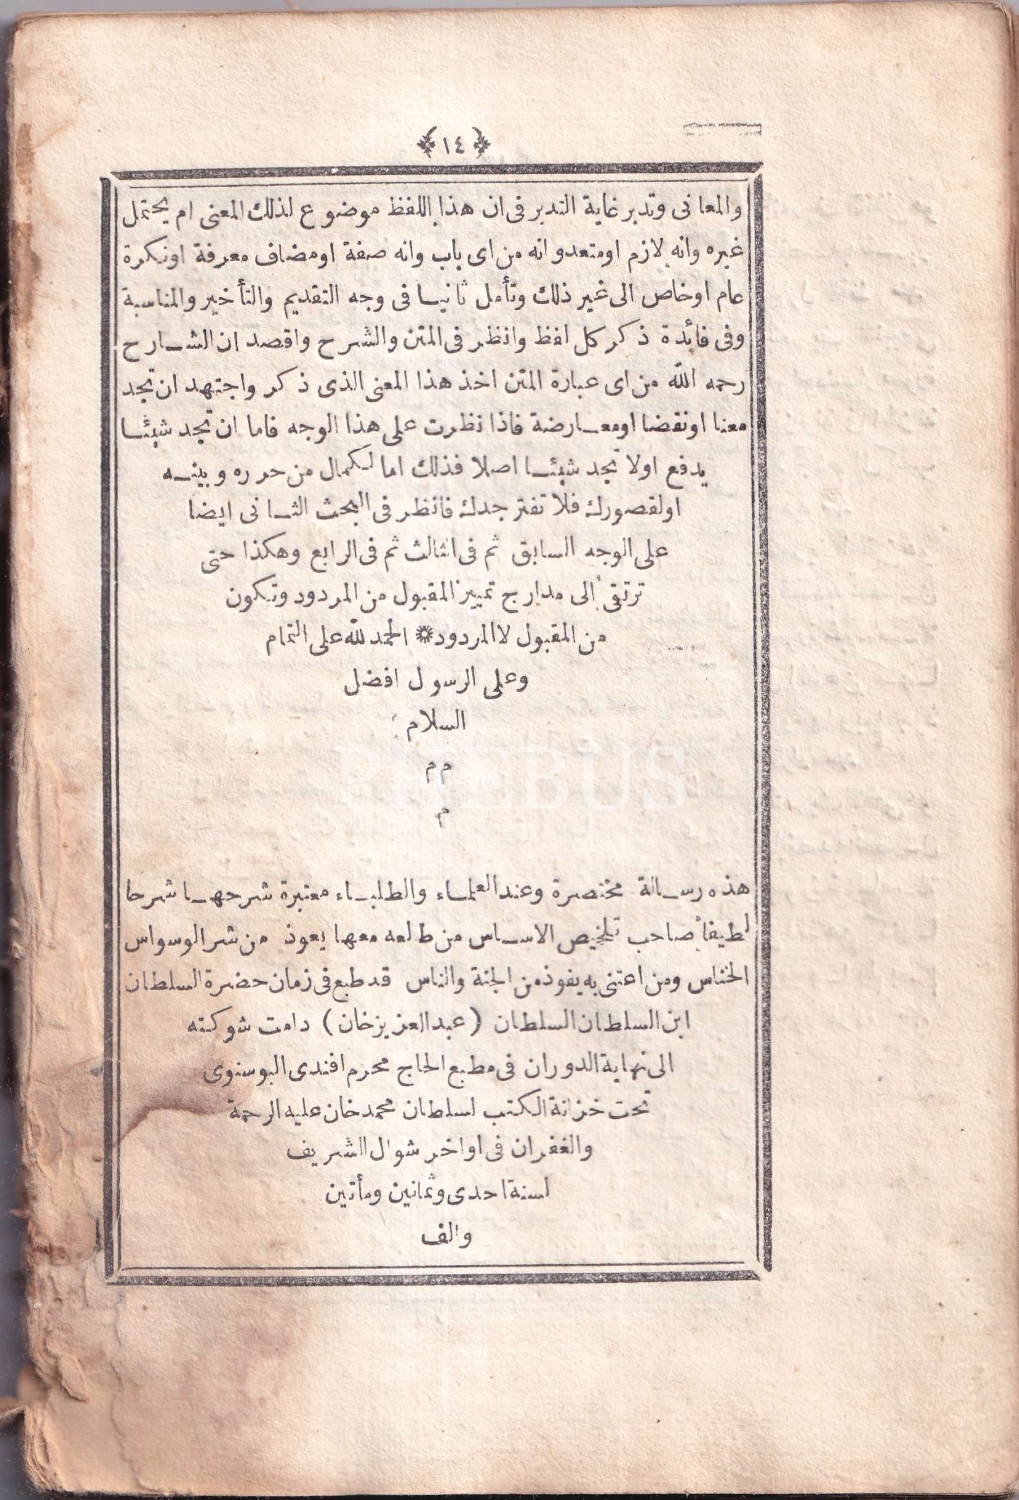 ١٤
والمعانى وتدبر غاية التدبر فى ان هذا اللفظ موضوع لذلك المعنى ام يحتمل
غيره وانه لازم اومتعد وانه من اى باب وانه صفة اومضاف معرفة اونكرة
عام اوخاص الى غير ذلك وتأمل ثانيا فى وجه التقديم والتأخير والمناسبة
وفى فائدة ذكر كل لفظ وانظر فى المتن والشرح واقصد ان الشارح
رحمه الله من اى عبارة المتن اخذ هذا المعنى الذى ذكر واجتهد ان تجد
معنا اونقضا اومعارضة فاذا نظرت على هذا الوجه فاما ان تجد شيئا
يدفع اولا تجد شيئا اصلا فذلك اما لكمال من حرره وبينه
اولقصورك فلا تفتر جدك فانظر فى البحث الثانى ايضا
على الوجه السابق ثم فى الثالث ثم فى الرابع وهكذا حتى
ترتقى الى مدارج تمييز المقبول من المردود وتكون
من المقبول لا المردود ۞ الحمد لله على التمام
وعلى الرسول افضل
السلام
م م
م
هذه رسالة مختصرة وعند العلماء والطلباء معتبرة شرحها شرحا
لطيفا صاحب تلخيص الاساس من طالعه معها يعوذ من شر الوسواس
الخناس ومن اعتنى به يفوذ من الجنة والناس قد طبع فى زمان حضرة السلطان
ابن السلطان السلطان (عبد العزيز خان) دامت شوكته
الى نهاية الدوران فى مطبع الحاج محرم افندى البوسنوى
تحت خزانة الكتب لسلطان محمد خان عليه الرحمة
والغفران فى اواخر شوال الشريف
لسنة احدى وثمانين ومأتين
والف
PHEBUS